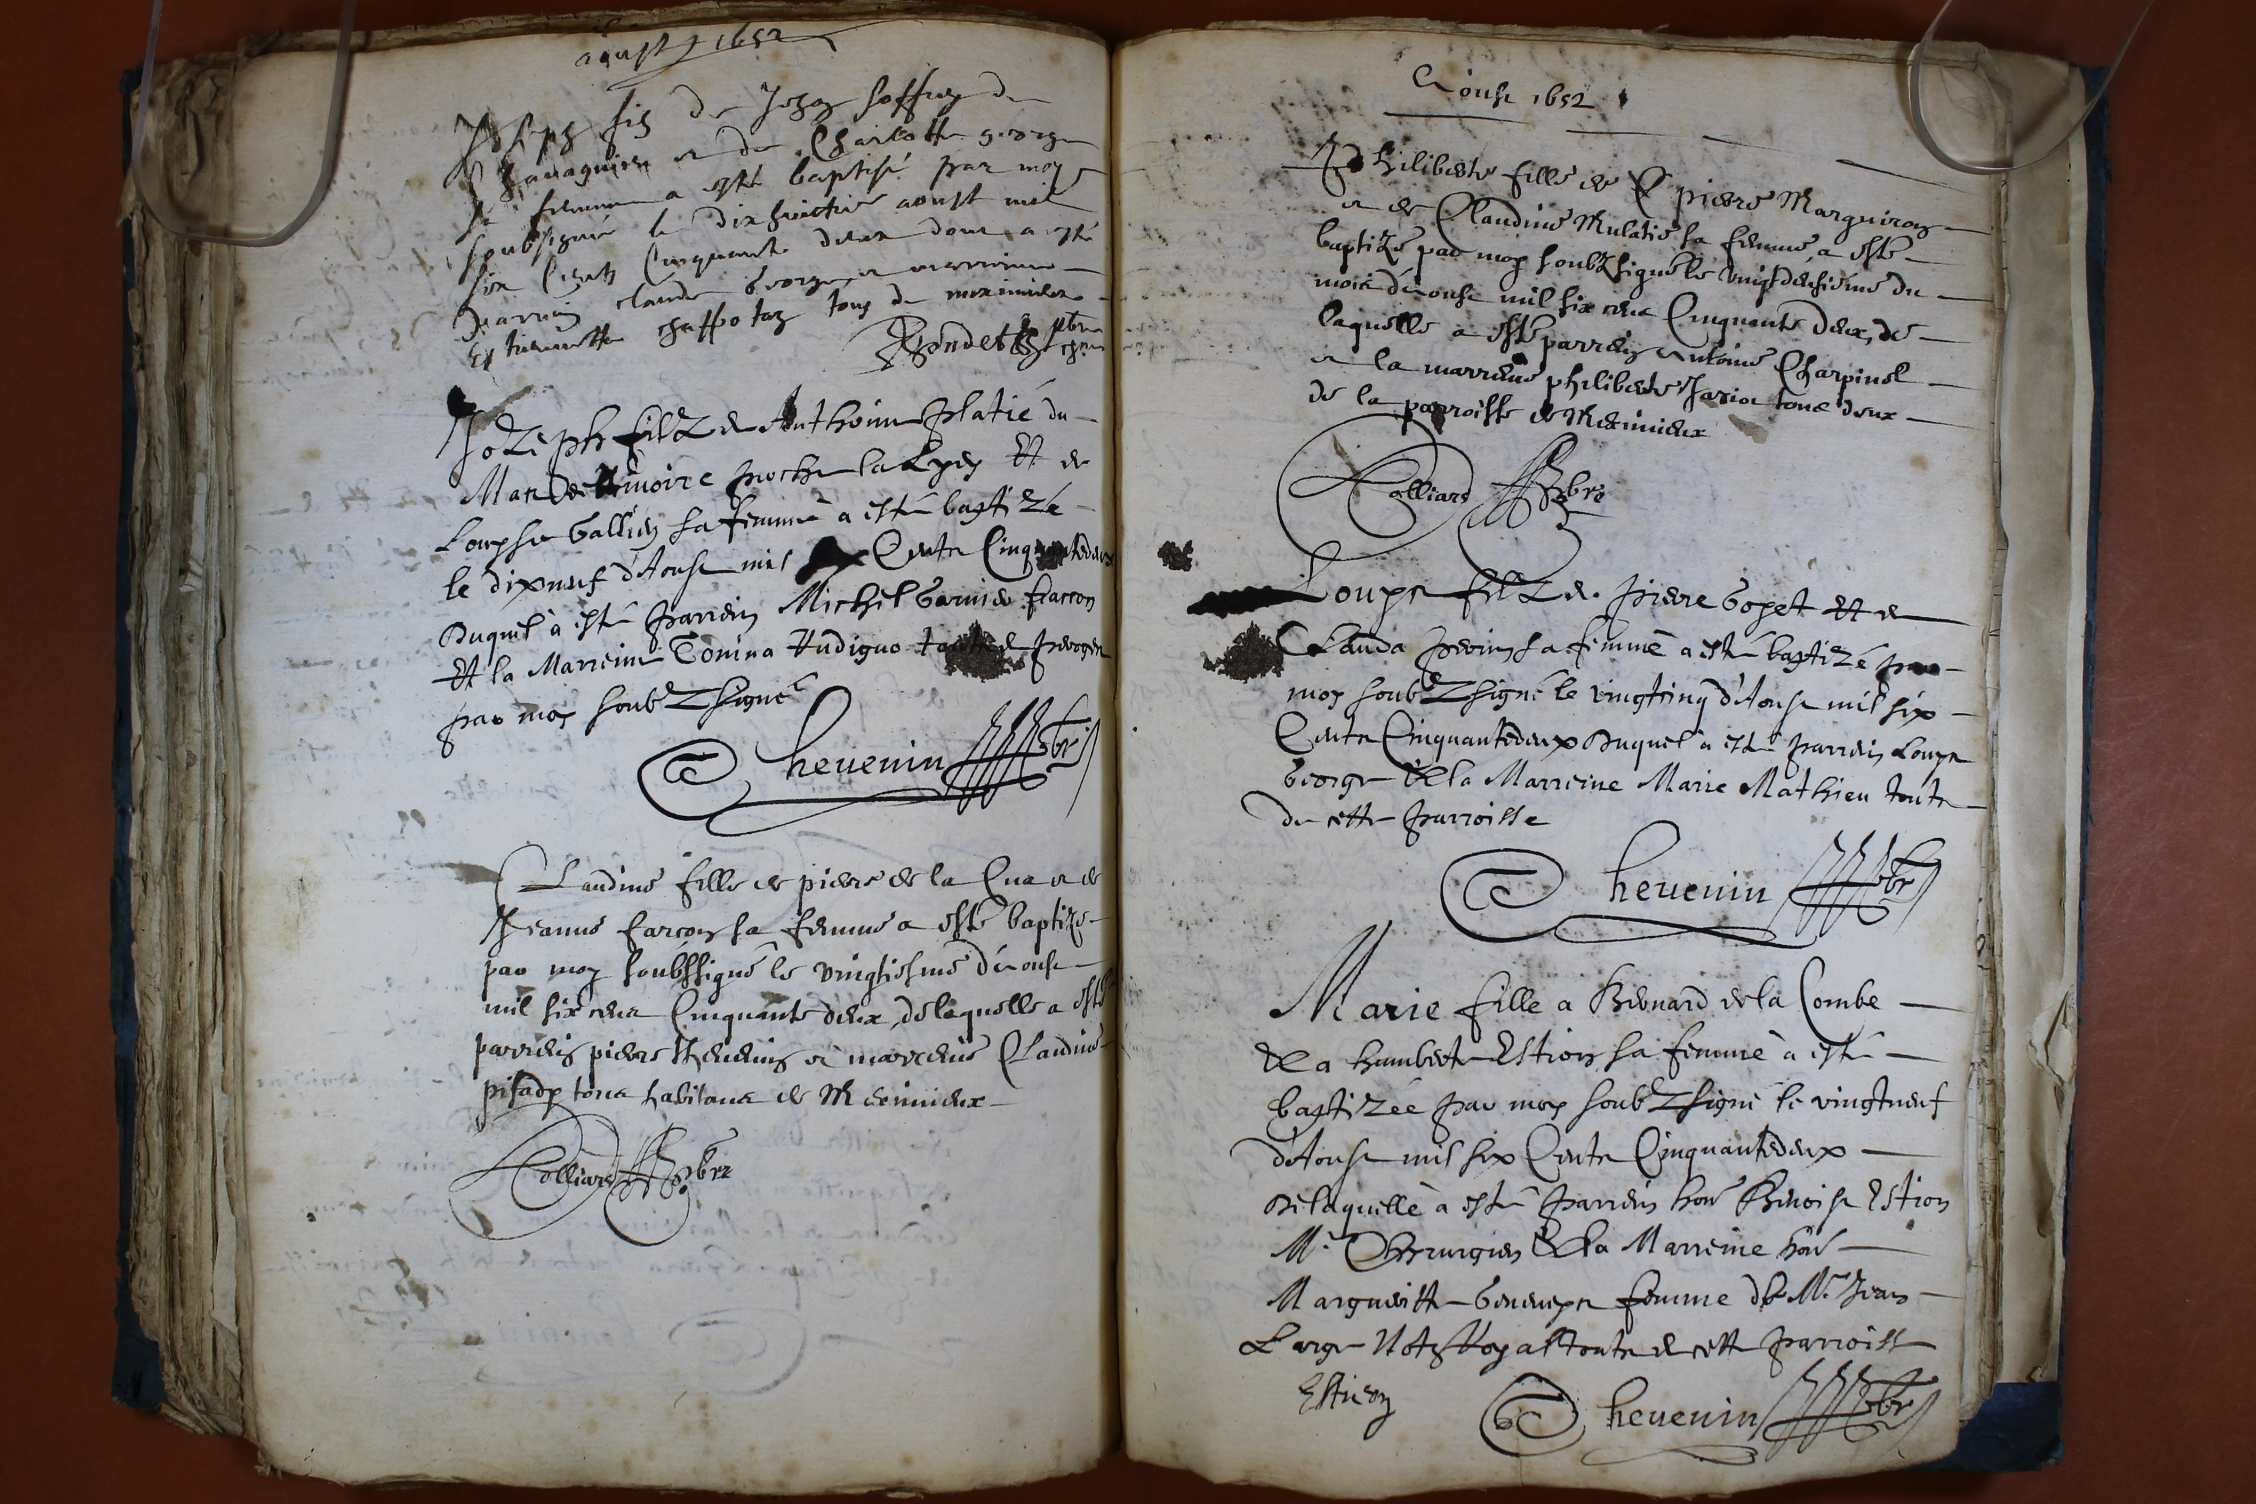 aoust 1652
Joseph fils de Jehan Joffrey de
et de Charlotte george
sa femme a esté baptisé par moy
soubsigné le dixhuictie aoust mil
six Cents Cinquante deux dont a esté
parrin claude George et marrinne
Estiennette tous de meximieux
Joseph filz de Anthoine platié du
Mas de proche la Lyes Et de
Louyse Gallien sa femme à esté baptizé
le dixneuf d'Aoust mil Cents Cinquantedeux
Duquel à esté parrein Michel Garnier
Et la Marreine Tonina de perouges
par moy soubzsigné
Thevenin pbr
Claudine fille de pierre de la Cua et de
Jeanne farcon sa femme a esté baptizé
par moy soubssigné le vingtiesme d'aoust
mil six cens Cinquante deux, de laquelle a esté
parrein pierre Thevenin et marreine Claudine
tous habitans de Meximieux
Colliard pbre
Aoust 1652
Philiberte fille de pierre Marguiron
et de Claudine Mulatie sa femme, a esté
baptizé par moy soubzsigné le vingtdeusiéme du
mois d'aoust mil six cens Cinquante deux, de
laquelle a esté parrein Antoine Charpinel
et la marreine philiberte Jariot tous deux
de la parroisse de Meximieux
Colliard pbre
Louys filz de pierre Goyet Et de
Clauda perrin sa femme a esté baptizé par
moy soubzsigné le vingtcinq d'Aoust mil six
Cents Cinquantedeux Duquel à esté parrein Louys
George Et la Marreine Marie Mathieu touts
de cette parroisse
Thevenin pbr
Marie fille a Bernard de la Combe
Et a humberte Estion sa femme à esté
baptizée par moy soubzsigné le vingtneuf
d'Aoust mil six Cents Cinquantedeux
Delaquelle à esté parrein hon Benoist Estion
Mr Chyrurgien Et la Marreine hon
Margueritte Geneveys femme de Mr Jean
Large Not Royal touts de cette parroisse
Estion
Thevenin pbr